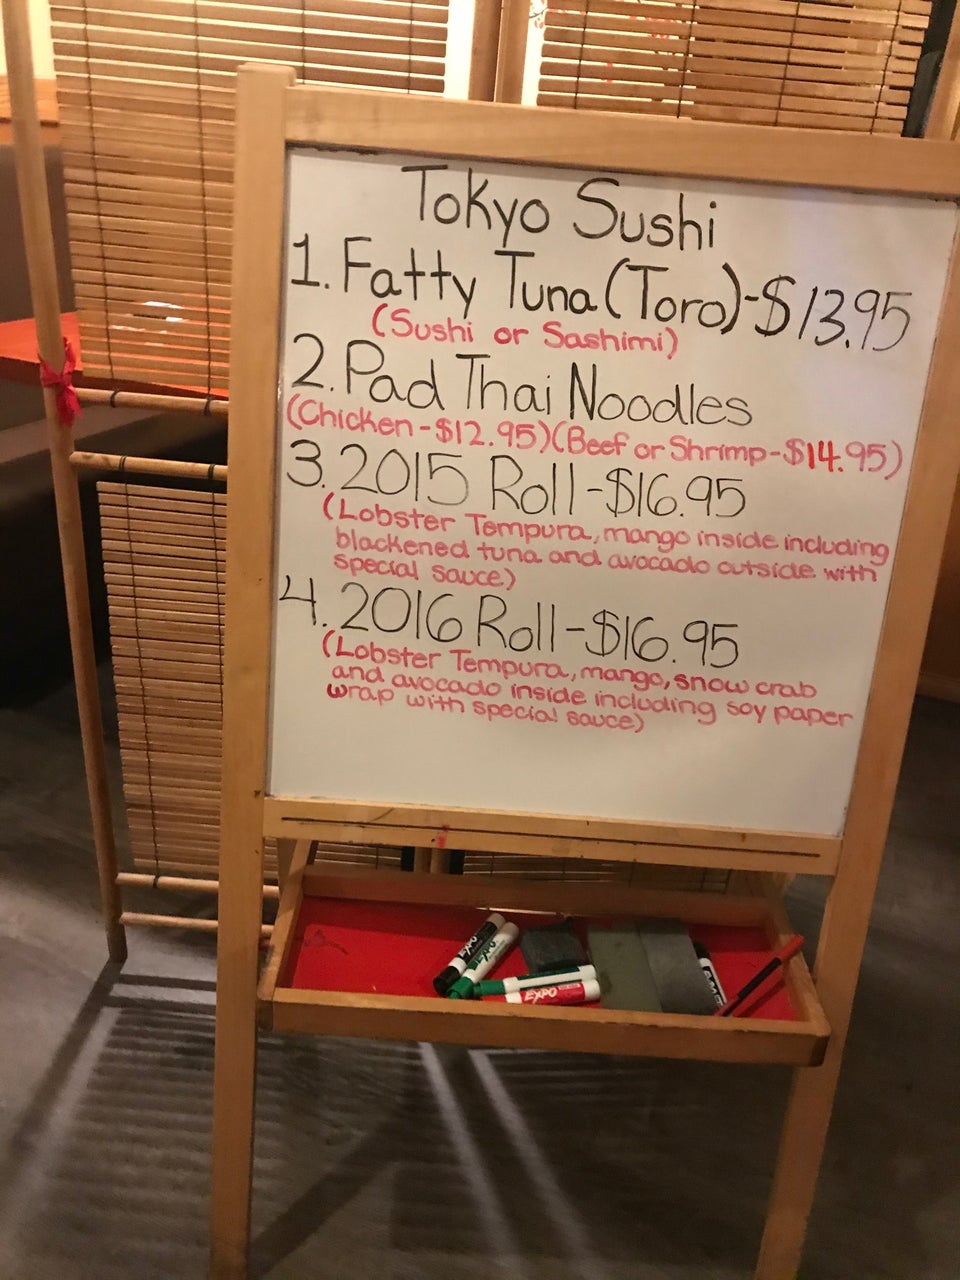 Tokyo Sushi
1. Fatty Tuna (Toro)-$13.95
(Sushi or Sashimi)
2. Pad Thai Noodles
(Chicken-$12.95)(Beef or Shrimp-$14.95)
3. 2015 Roll-$16.95
(Lobster Tempura, mango inside including
blackened tuna and avocado outside with
special sauce)
4. 2016 Roll-$16.95
(Lobster Tempura, mango, snow crab
and avocado inside including soy paper
wrap with special sauce)
EXPO
EXPO